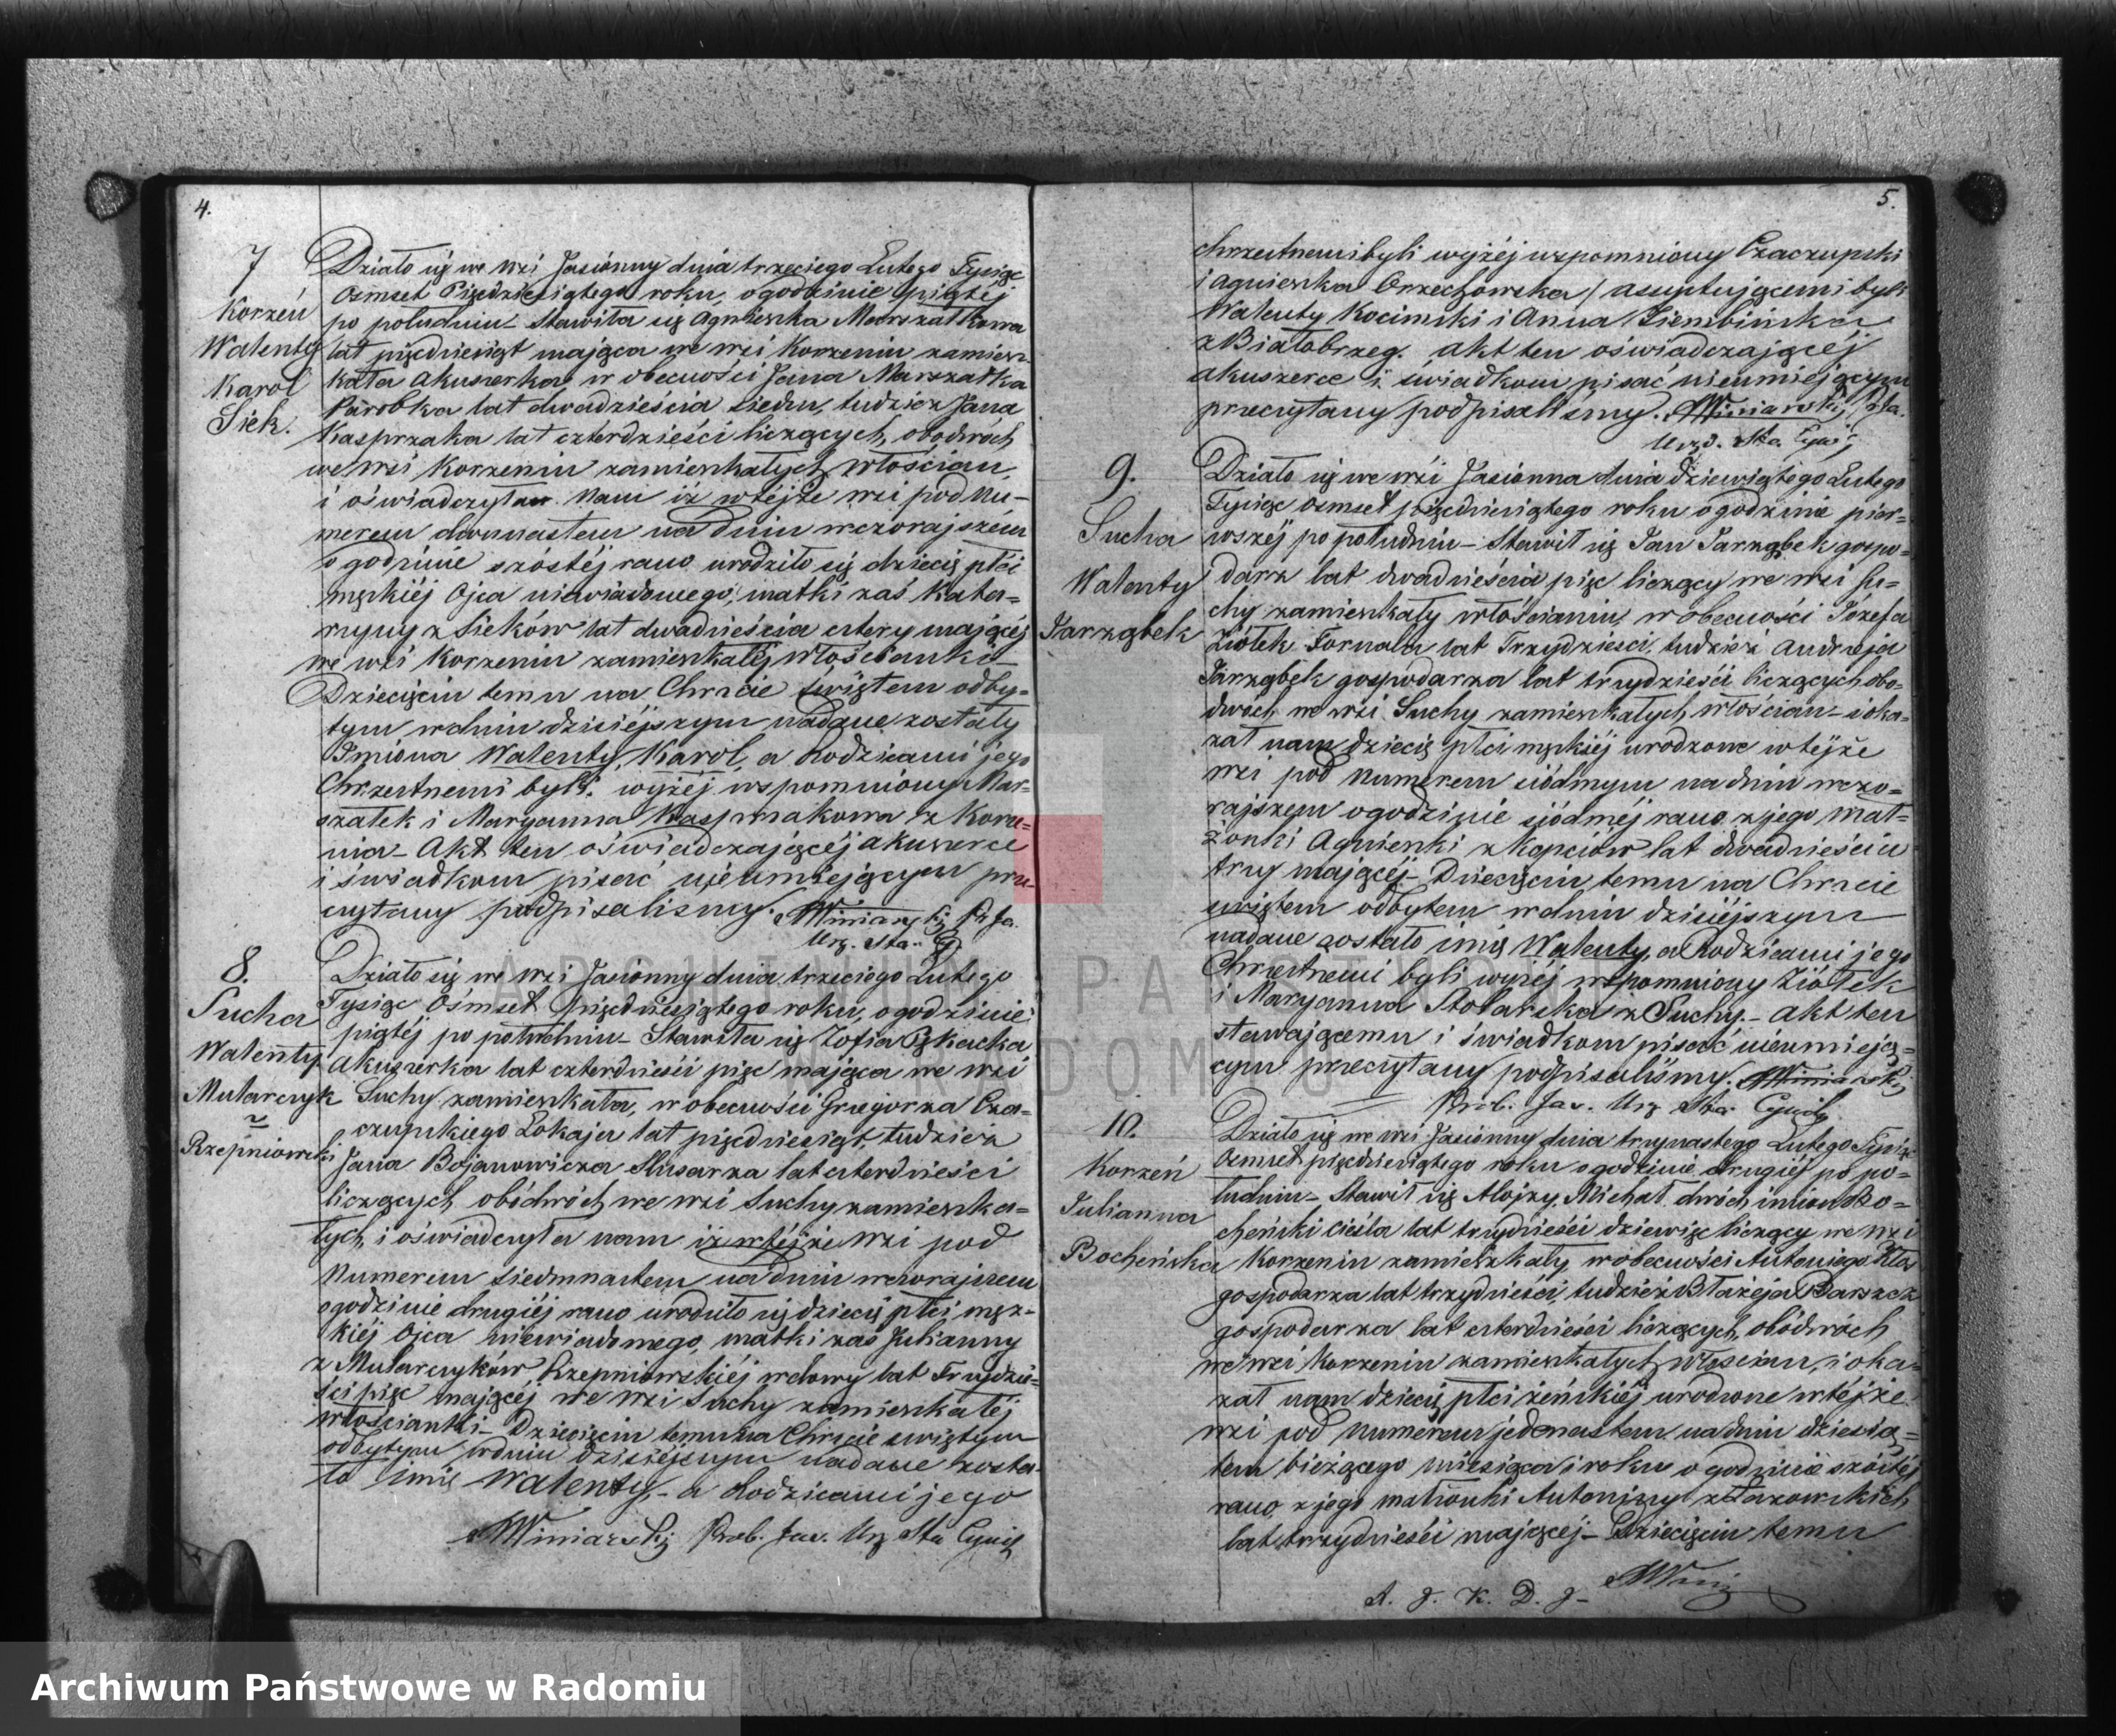 4.
7
Korzeń
Walenty
Karol
Siek.
Działo się we wsi Jasionny dnia trzeciego Lutego Tysiąc
Osmset Pięćdziesiątego roku, o godzinie piątéj
po południu – Stawiła się Agnieszka Marszałkowa
lat pięćdziesiąt mająca we wsi Korzeniu zamiesz-
kała Akuszerka, w obecności Jana Marszałka
Parobka lat dwadzieścia siedm, tudzież Jana
Kasprzaka lat czterdzieści liczących, obodwóch
we wsi Korzeniu zamieszkałych włościan,
i oświadczyła nam iż w téjże wsi pod Nu-
merem dwunastem na dniu wczorajszém
o godzinie szóstéj rano urodziło się dziecię płci
męzkiéj Ojca niewiadomego, matki zaś Kata-
rzyny z Sieków lat dwadzieścia cztery mającéj
we wsi Korzeniu zamieszkałéj włościanki –
Dziecięciu temu na Chrzcie świętem odby-
tym w dniu dzisiéjszym nadane zostały
Imiona Walenty, Karol, a Rodzicami jego
Chrzestnemi byli: wyżéj wspomniony Mar-
szałek i Maryanna Kasprzakowa z Korze-
nia – Akt ten oświadczającéj akuszerce
i świadkom pisać nieumiejącym prze-
czytany podpisaliśmy. Winiarski Pr. Ja.
Urz. Sta. C.
8.
Sucha
Walenty
Mularczyk
Rzepniowski
Działo się we wsi Jasionny dnia trzeciego Lutego
Tysiąc Ośmset pięćdziesiątego roku, o godzinie
piątéj po południu – Stawiła się Zofia
Akuszerka lat czterdzieści pięć mająca we wsi
Suchy zamieszkała, w obecności Grzegorza Cza-
czupskiego Lokaja lat pięćdziesiąt, tudzież
Jana Bojanowicza Slusarza lat czterdzieści
liczących obódwóch we wsi Suchy zamieszka-
łych, i oświadczyła nam iż w téjże wsi pod
Numerem siedmnastem na dniu wczorajszem
o godzinie drugiéj rano urodziło się dziecię płci męz-
kiéj Ojca niewiadomego, matki zaś Julianny
z Mularczyków, Rzepniowskiéj wdowy lat Trzydzie-
ści pięć mającéj we wsi Suchy zamieszkałéj
włościanki – Dziecięciu temu na Chrzcie świętym
odbytym w dniu dzisiéjszym nadane zosta-
ło imie Walenty, – a Rodzicami jego
Winiarski Prob. Jas. Urz Sta Cywil
5.
chrzestnemi byli wyżéj wspomniony Czaczupski
i Agnieszka Orzechowska / asystującemi byli
Walenty Kocimski i Anna Ziembińska
z Białobrzeg. Akt ten oświadczającéj
akuszerce i świadkom pisać nieumiejącym
przeczytany podpisaliśmy. Winiarski
Urzd. Sta. Cywil
9.
Sucha
Walenty
Jarząbek
Działo się we wsi Jasionna dnia dziewiątego Lutego
Tysiąc osmset pięćdziesiątego roku o godzinie pier-
wszéj po południu – Stawił się Jan Jarząbek gospo-
darz lat dwadzieścia pięć liczący we wsi Su-
chy zamieszkały włościanin, w obecności Józefa
Ziółek Fornala lat Trzydzieści, tudzież Andrzeja
Jarząbek gospodarza lat trzydzieści liczących obo-
dwóch we wsi Suchy zamieszkałych, włościan – i oka-
zał nam dziecię płci męzkiéj urodzone w téjże
wsi pod Numerem siódmym na dniu wczo-
rajszem o godzinie siódméj rano z jego mał-
żonki Agnieszki z Kopciów lat dwadzieścia
trzy mającéj – Dziecięciu temu na Chrzcie
świętem odbytem w dniu dzisiéjszym
nadane zostało imię Walenty, a Rodzicami jego
Chrzestnemi byli wyżéj wspomniony Ziółek
i Maryanna Stolarska z Suchy – Akt ten
stawającemu i świadkom pisać nieumieją-
cym przeczytany podpisaliśmy. Winiarski
Prob. Jas. Urz Sta Cywily
10.
Korzeń
Julianna
Bocheńska
Działo się we wsi Jasionny dnia trzynastego Lutego Tysiąc
Osmset pięćdziesiątego roku o godzinie drugiéj po po-
łudniu – Stawił się Alojzy, Michał dwóch imion Bo-
cheński cieśla lat trzydzieści dziewięć liczący we wsi
Korzeniu zamieszkały, w obecności Antoniego
gospodarza lat trzydzieści, tudzież Błażeja Barszcz
gospodarza lat czterdzieści liczących, obódwóch
we wsi Korzeniu zamieszkałych włościan, i oka-
zał nam dziecię płci żeńskiéj urodzone w téjże
wsi pod Numerem jedenastem na dniu dziesią-
tem bieżącego miesiąca i roku o godzinie szóstéj
rano, z jego małżonki Antoniny z Łazowskich
lat trzydzieści mającéj – Dziecięciu temu
A. J. K. D. J –
ARCHIWUM PAŃSTWOWE
W RADOMIU
Archiwum Państwowe w Radomiu